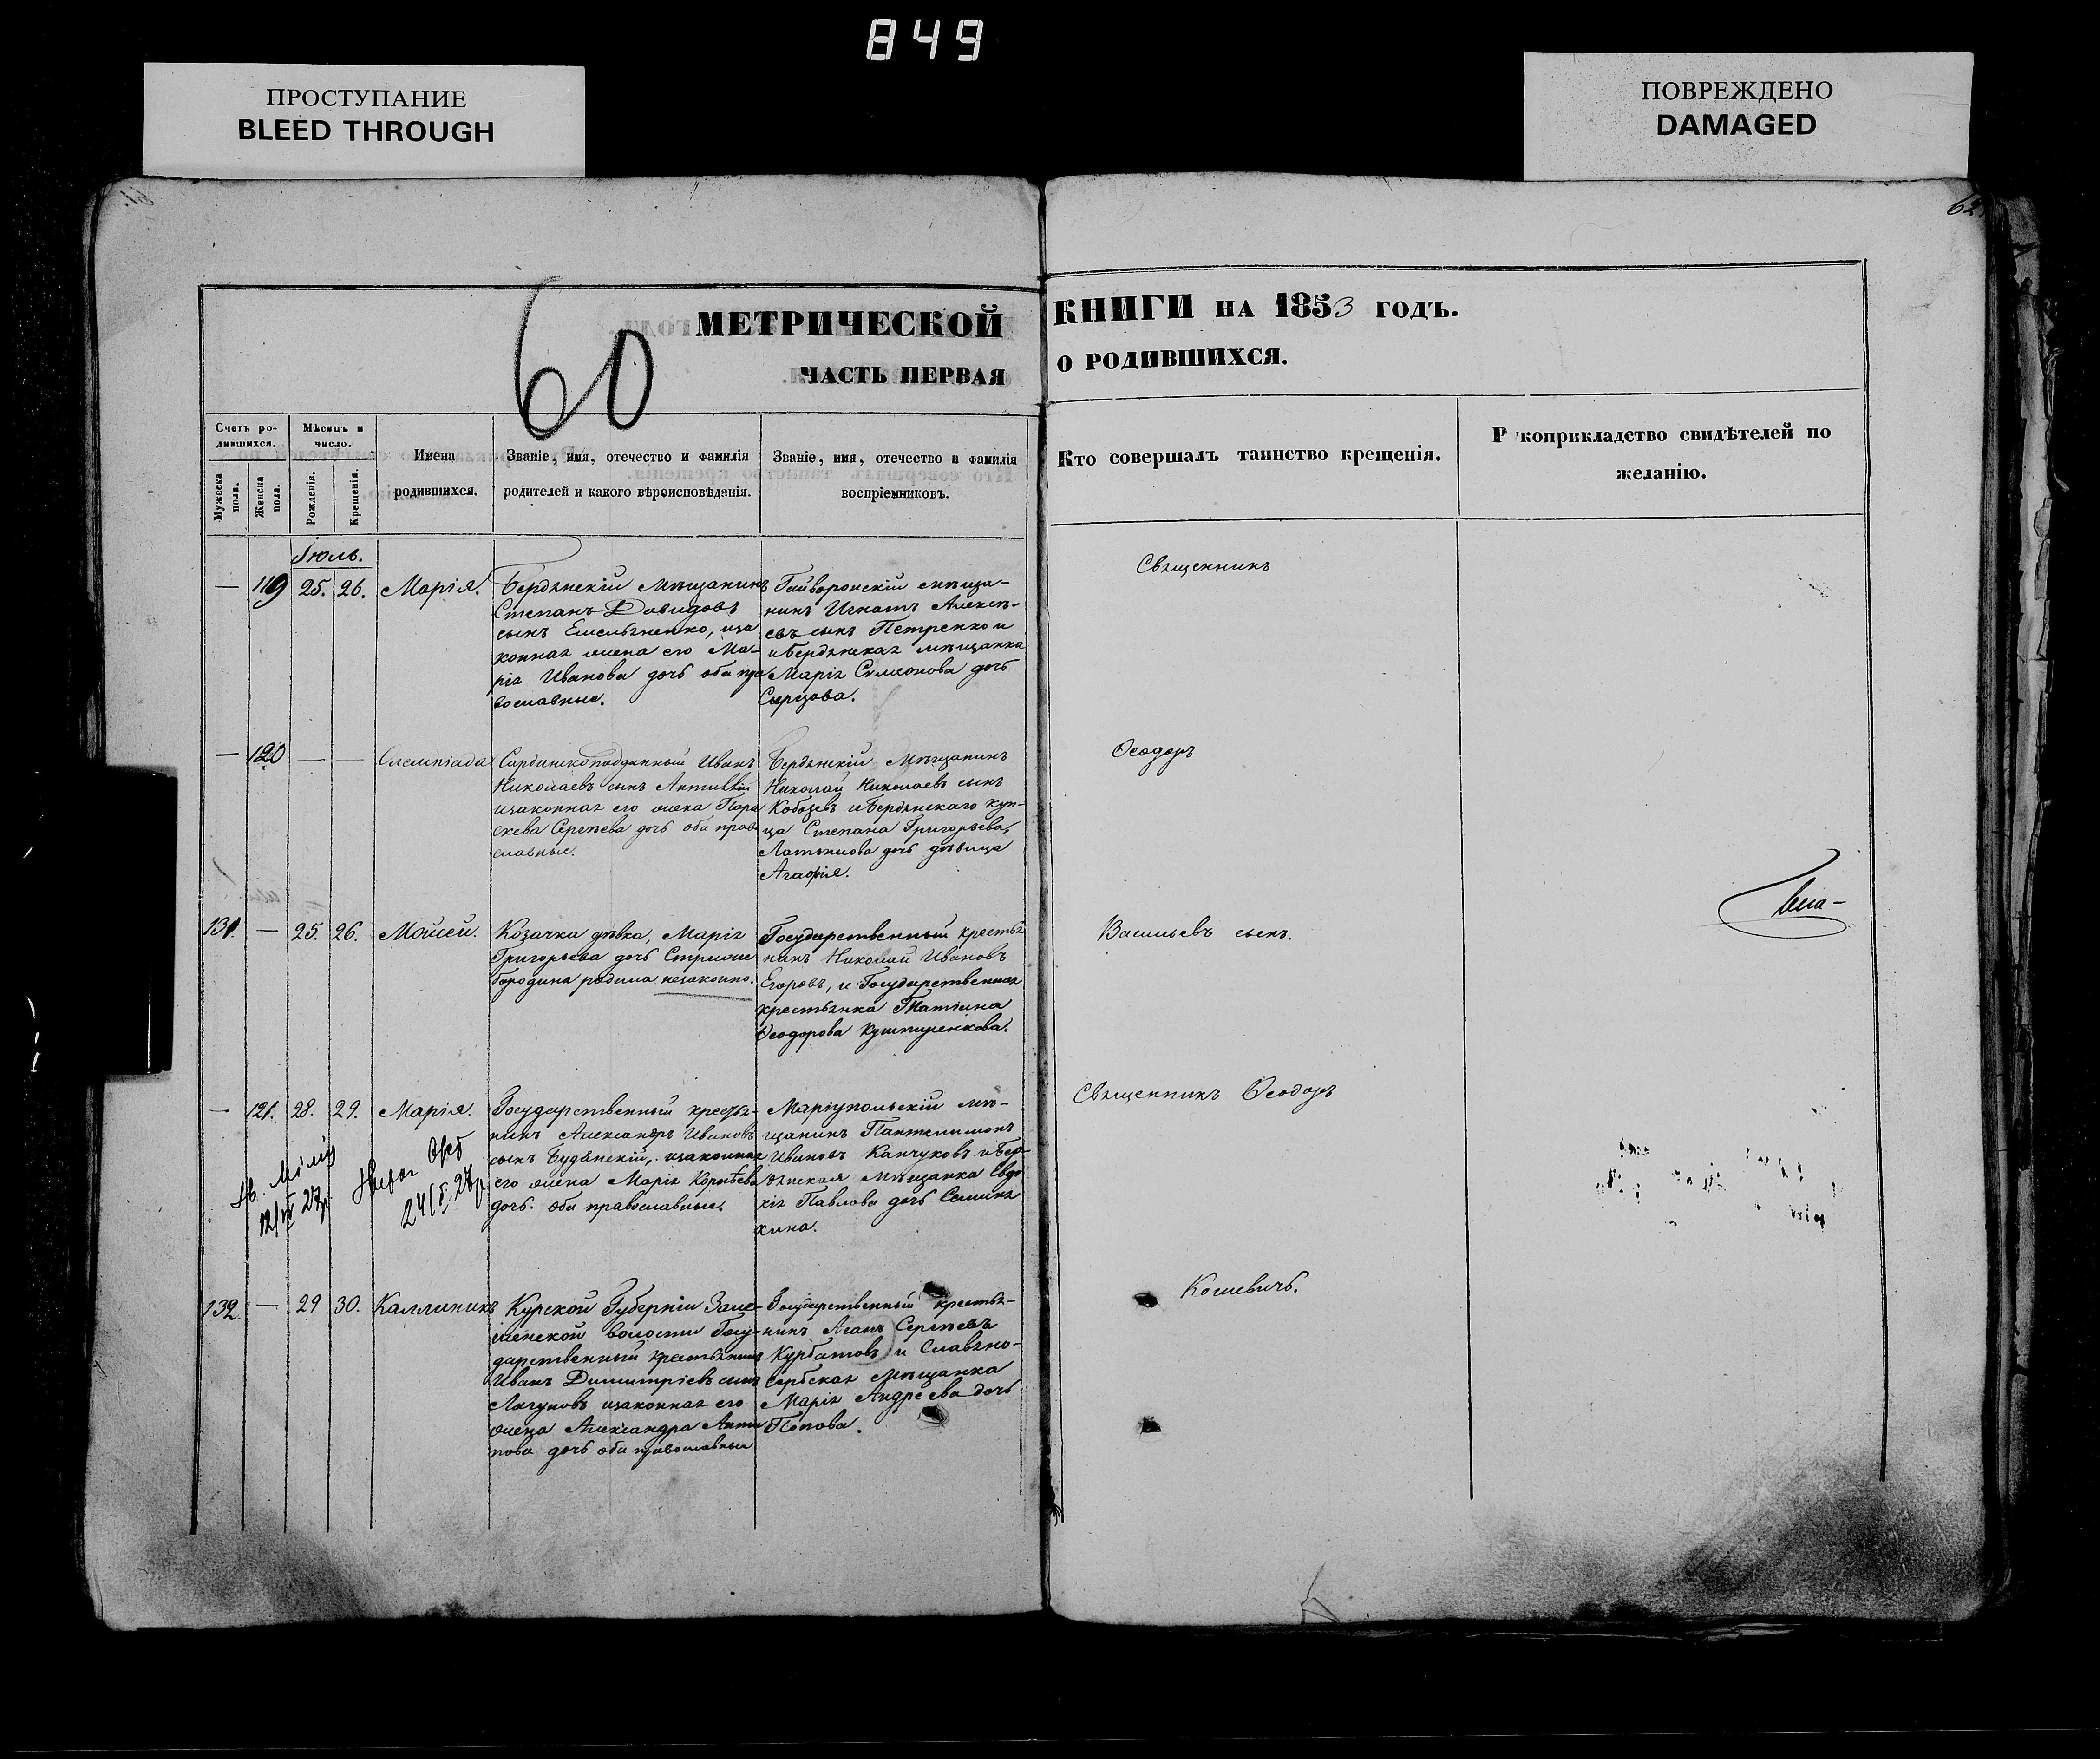 849
ПРОСТУПАНИЕ
BLEED THROUGH
ПОВРЕЖДЕНО
DAMAGED
62
60
МЕТРИЧЕСКОЙ
КНИГИ НА 1853 ГОДЪ.
ЧАСТЬ ПЕРВАЯ
О РОДИВШИХСЯ.
Счетъ ро-
дившихся.
Мужеска пола.
Женска пола.
Мѣсяцъ и
число.
Рожденія.
Крещенія.
Имена
родившихся.
Званіе, имя, отечество и фамилія
родителей и какого вѣроисповѣданія.
Званіе, имя, отечество и фамилія
воспріемниковъ.
Кто совершалъ таинство крещенія.
Рукоприкладство свидѣтелей по
желанію.
Іюль.
— 119 25. 26. Марія.
Бердянскій Мѣщанинъ
Степанъ Давидовъ
сынъ Емельяненко, иза
конная жена его Ма-
рія Иванова дочь оба пра
вославные.
Гайворонскій мѣща-
нинъ Игнатъ Алексѣ-
евъ сынъ Петренко и
и Бердянская мѣщанка
Марія Симеонова дочь
Сырцова.
Священникъ
— 120 — — Олимпіада
Сардинскоподданный Иванъ
Николаевъ сынъ
изаконная его жена Пара
скева Сергѣева дочь оба право
славные.
Бердянскій Мѣщанинъ
Николай Николаевъ сынъ
Кобозевъ и Бердянскаго куп-
ца Степана Григорьева
дочь дѣвица
Агафія.
Феодоръ
131. — 25. 26. Мойсей.
Козачка дѣвка, Марія
Григорьева дочь Стриже
бородина родила незаконно.
Государственный крестья
нинъ Николай Ивановъ
Егоровъ, и Государственная
крестьянка Татіана
Феодорова
Васильевъ сынъ.
— 121. 28. 29. Марія.
Государственный крестья-
нинъ Александръ Ивановъ
сынъ Будянскій, изаконная
его жена Марія Корнѣева
дочь. оба православные.
Маріупольскій мѣ-
щанинъ Пантелимонъ
Ивановъ Канчуковъ и Бер-
дянская Мѣщанка Евдо
кія Павлова дочь Семиня
кина.
Священникъ Феодоръ
132. — 29 30. Каллиникъ
Курской Губерніи
волости Госу-
дарственный Крестьянинъ
Иванъ Димитріевъ сынъ
Лагуновъ изаконная его
жена Александра Анти
пова дочь оба православные
Государственный крестья-
нинъ Сергѣевъ
Курбатовъ и Славяно-
сербская Мѣщанка
Марія Андреева дочь
Попова.
Кошевичъ.